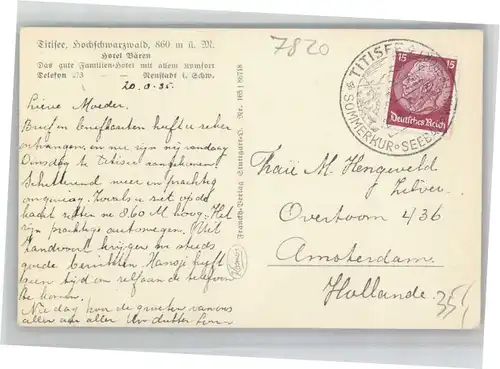 Titisee, Hochschwarzwald, 860 m ü. M.
Hotel Bären
Das gute Familien-Hotel mit allem Komfort
Telefon — — Neustadt i. Schw.
20-8-35.
Lieve Moeder.
Brief en briefkaarten heeft u zeker
ontvangen, en we zijn nu vandaag
Dinsdag te Titisee aangekomen.
Schitterend meer en prachtig
omgeving. Zooals u ziet op de
kaart zitten we 860 M hoog. Het
zijn prachtige autowegen. Uit
Zandvoort krijgen we steeds
goede berichten. Hansje heeft
een tijd om zelf aan de telefoon
te komen.
Nu dag hoor de groeten van ons
allen aan allen
Franckh-Verlag Stuttgart-O. Nr. 165
7820
TITISEE
SOMMERKUR SEEBAD
15 15
Deutsches Reich
Frau M. Hengeveld
Zilver.
Overtoom 436
Amsterdam.
Hollande.
35,